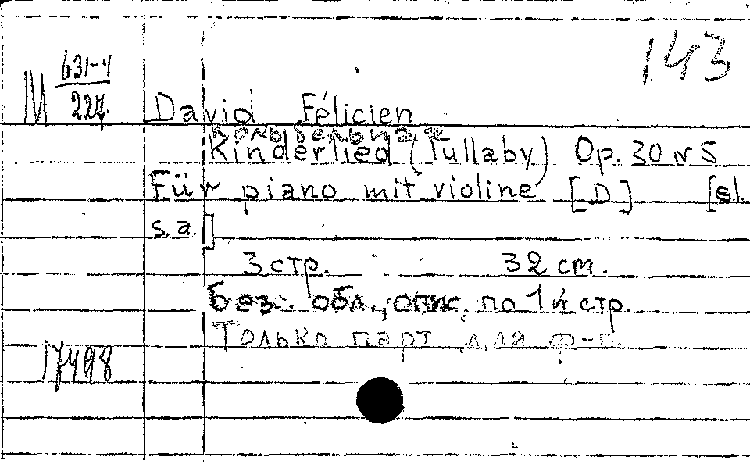 143
М 631-4
227
David Félicien
колыбельная
Kinderlied (Lullaby) Op. 30 N 5
Für piano mit violine [D] [sl.
s. a.]
3 стр. 32 cm.
без. обл., опис. по 1й стр.
Только парт. для ф-п.
17498